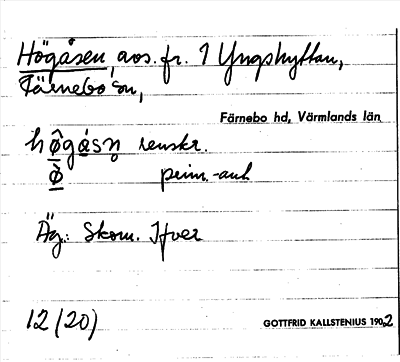 Högåsen, avs. fr. 1 Yngshyttan,
Färnebo sn,
Färnebo hd, Värmlands län
hø̂gásn̥ renskr.
ø̂ prim.-auk.
Äg.: Skom. Ifver
12 (20)
GOTTFRID KALLSTENIUS 1902